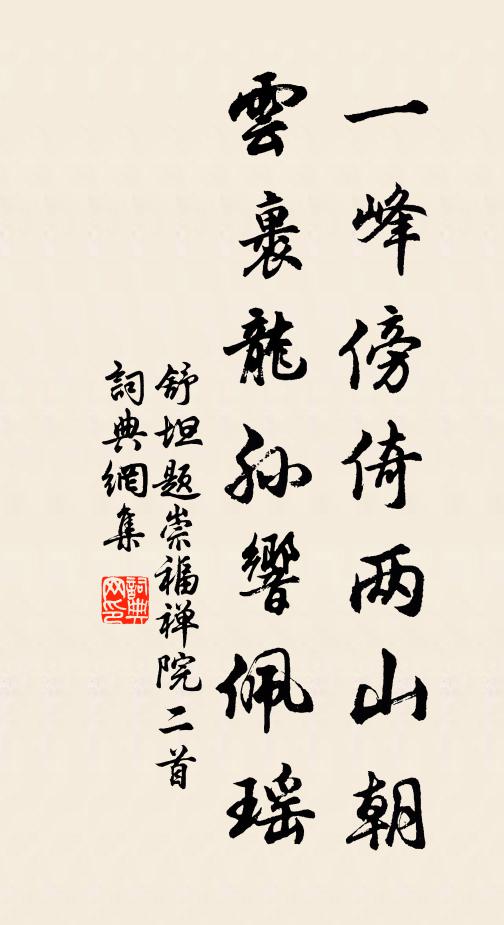 一峰傍倚两山朝
雲裏龍孫響佩瑶
舒坦题崇福禅院二首
詞典網集
詞典網印